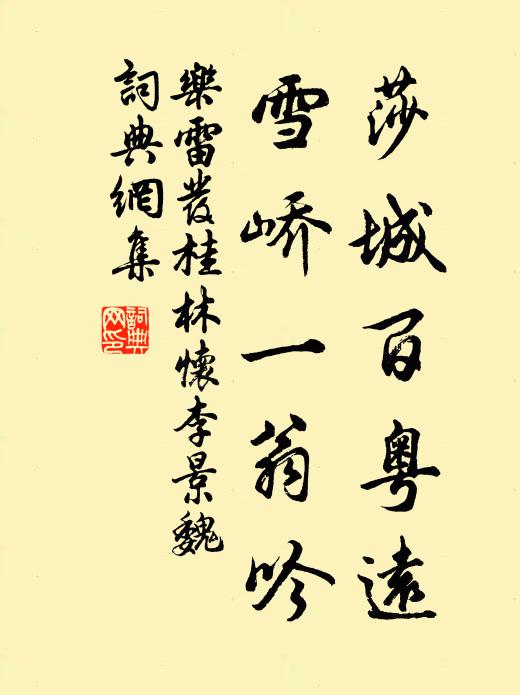 莎城百粤遠
雪嶠一翁吟
樂雷發桂林懷李景魏
詞典網集
詞典网印